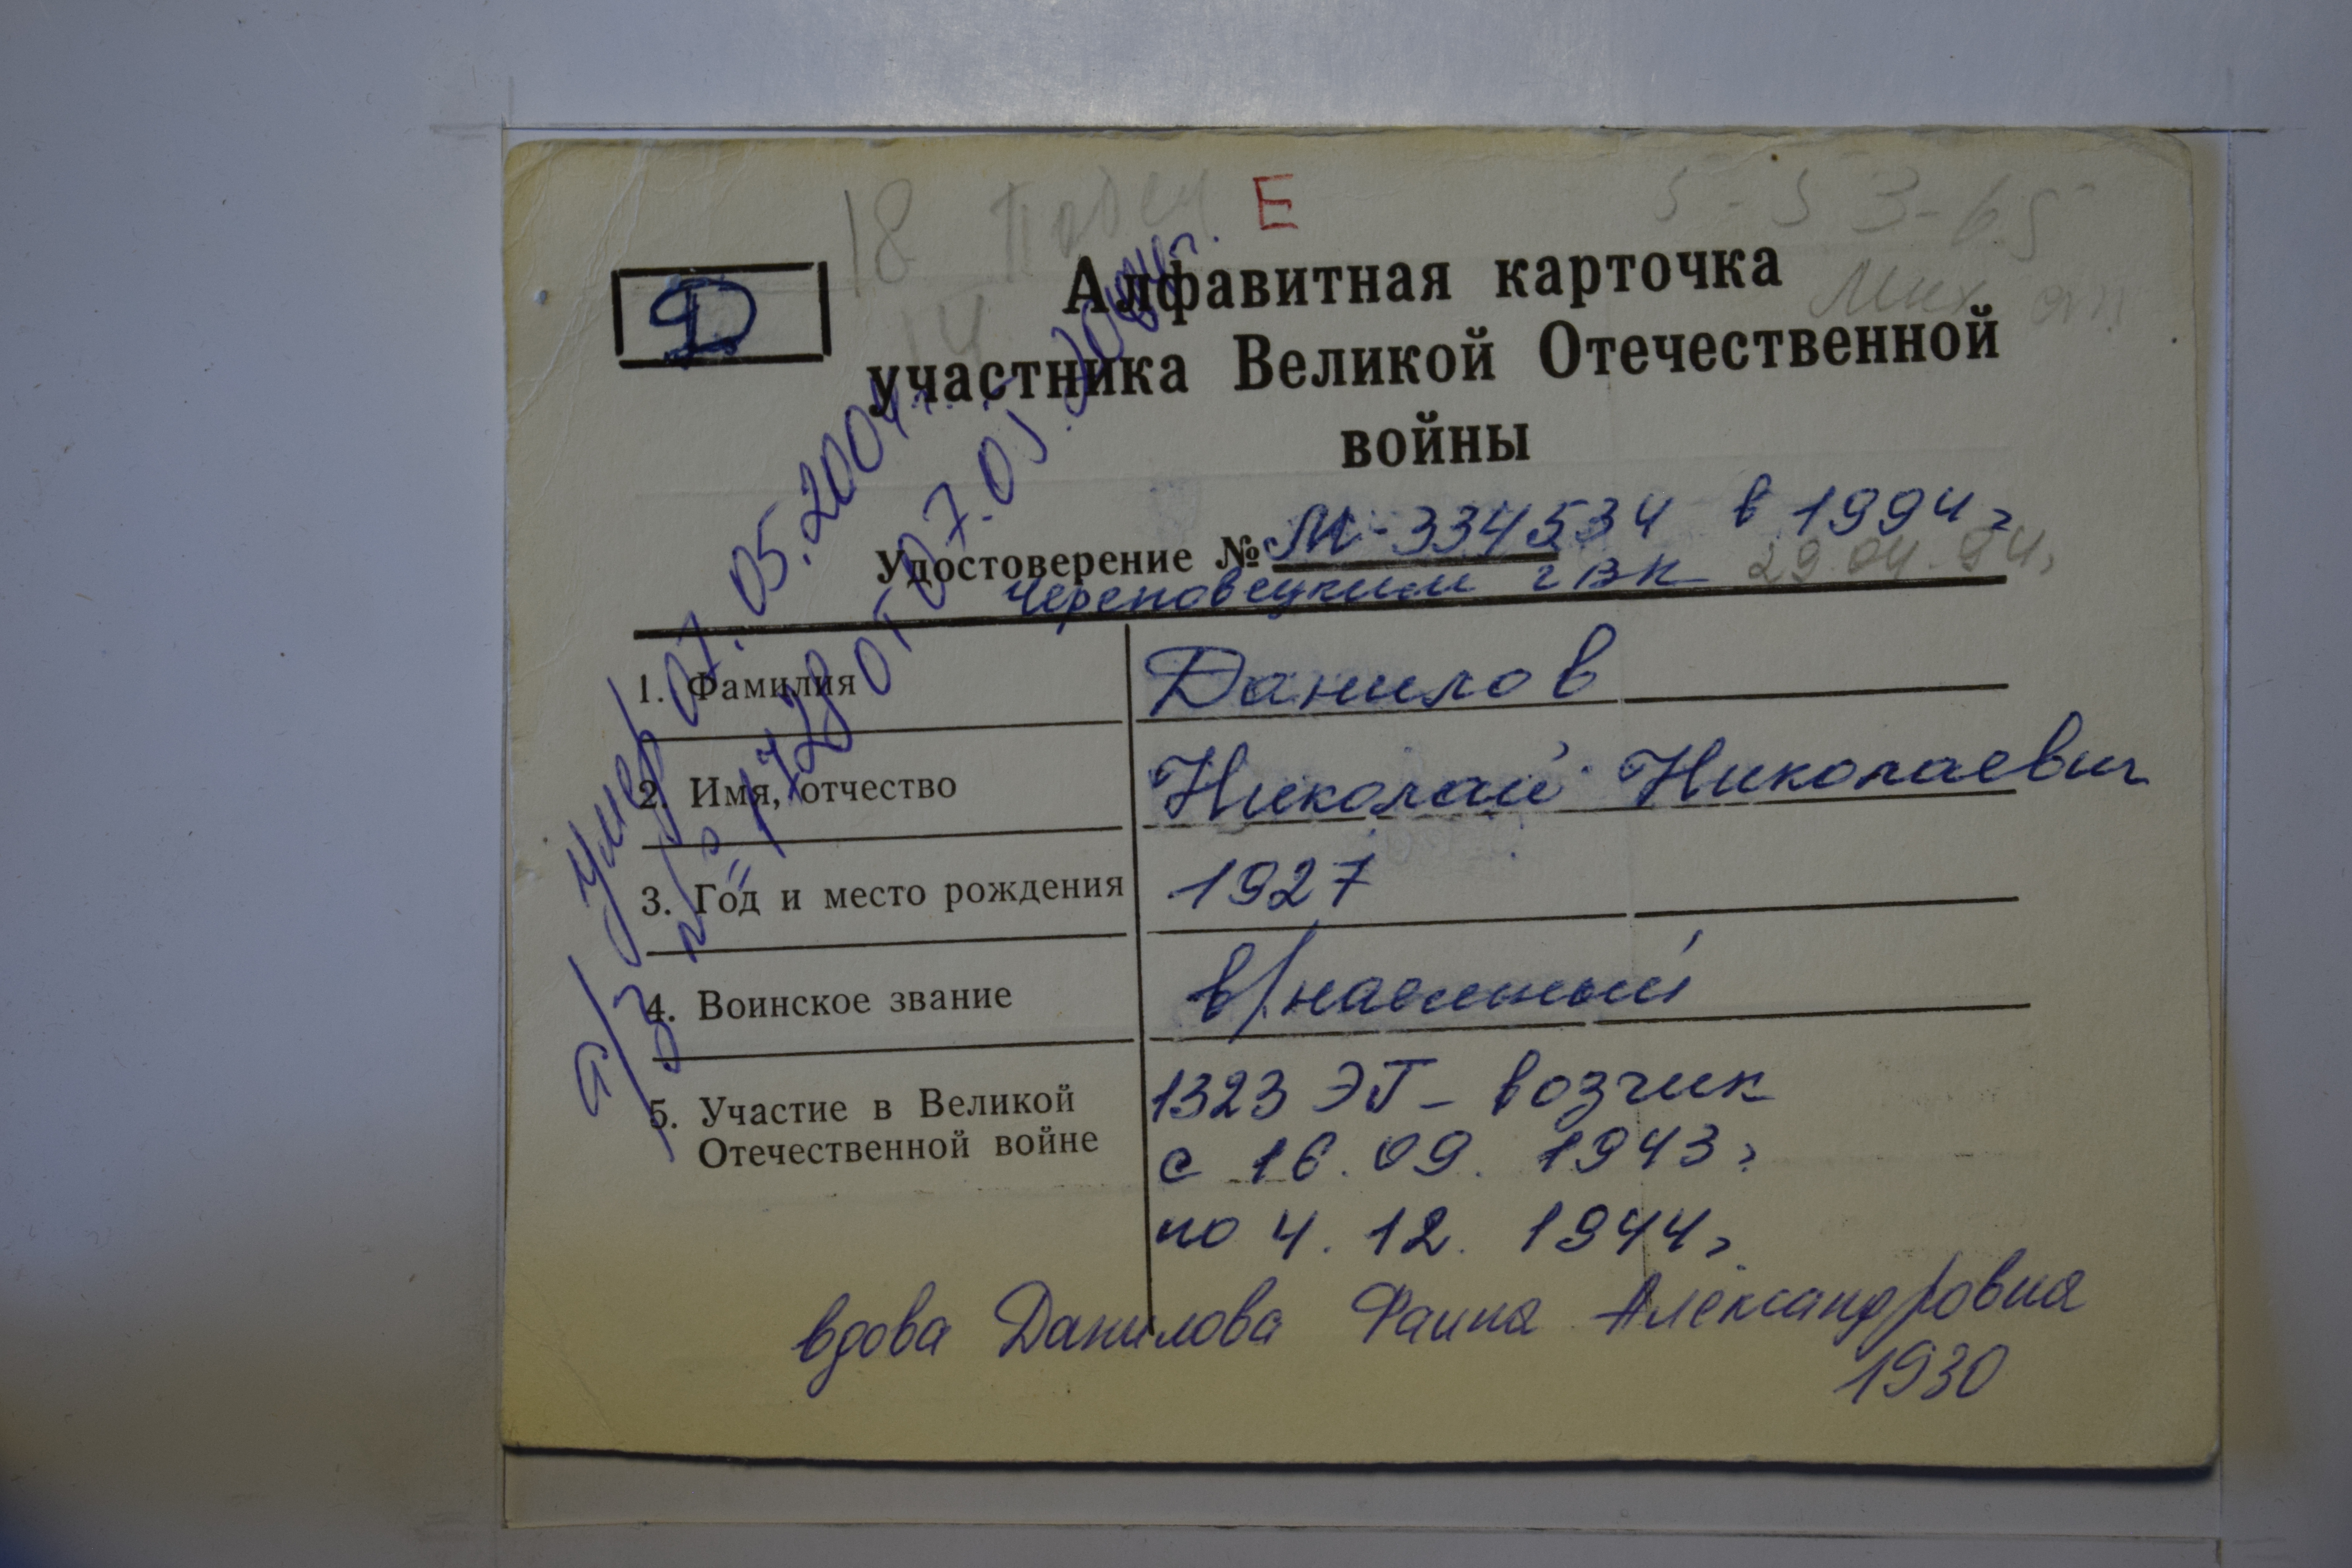 18 Побед Е 5-53-65
Д
14
Мих ал
Алфавитная карточка
участника Великой Отечественной
войны
Удостоверение № М-334534 в 1994 г
Череповецким гвк 29.04.94г
1. Фамилия Данилов
2. Имя, отчество Николай Николаевич
3. Год и место рождения 1927
4. Воинское звание в/наемный
5. Участие в Великой
Отечественной войне
1323 ЭГ - возчик
с 16.09.1943г
по 4.12.1944г
вдова Данилова Фаина Александровна
1930
умер 07.05.2004г.
№ 1728 от 07.05.2004г.